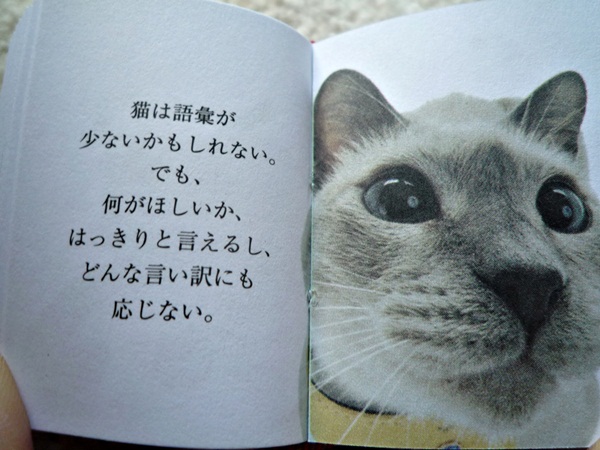 猫は語彙が
少ないかもしれない。
でも、
何がほしいか、
はっきりと言えるし、
どんな言い訳にも
応じない。